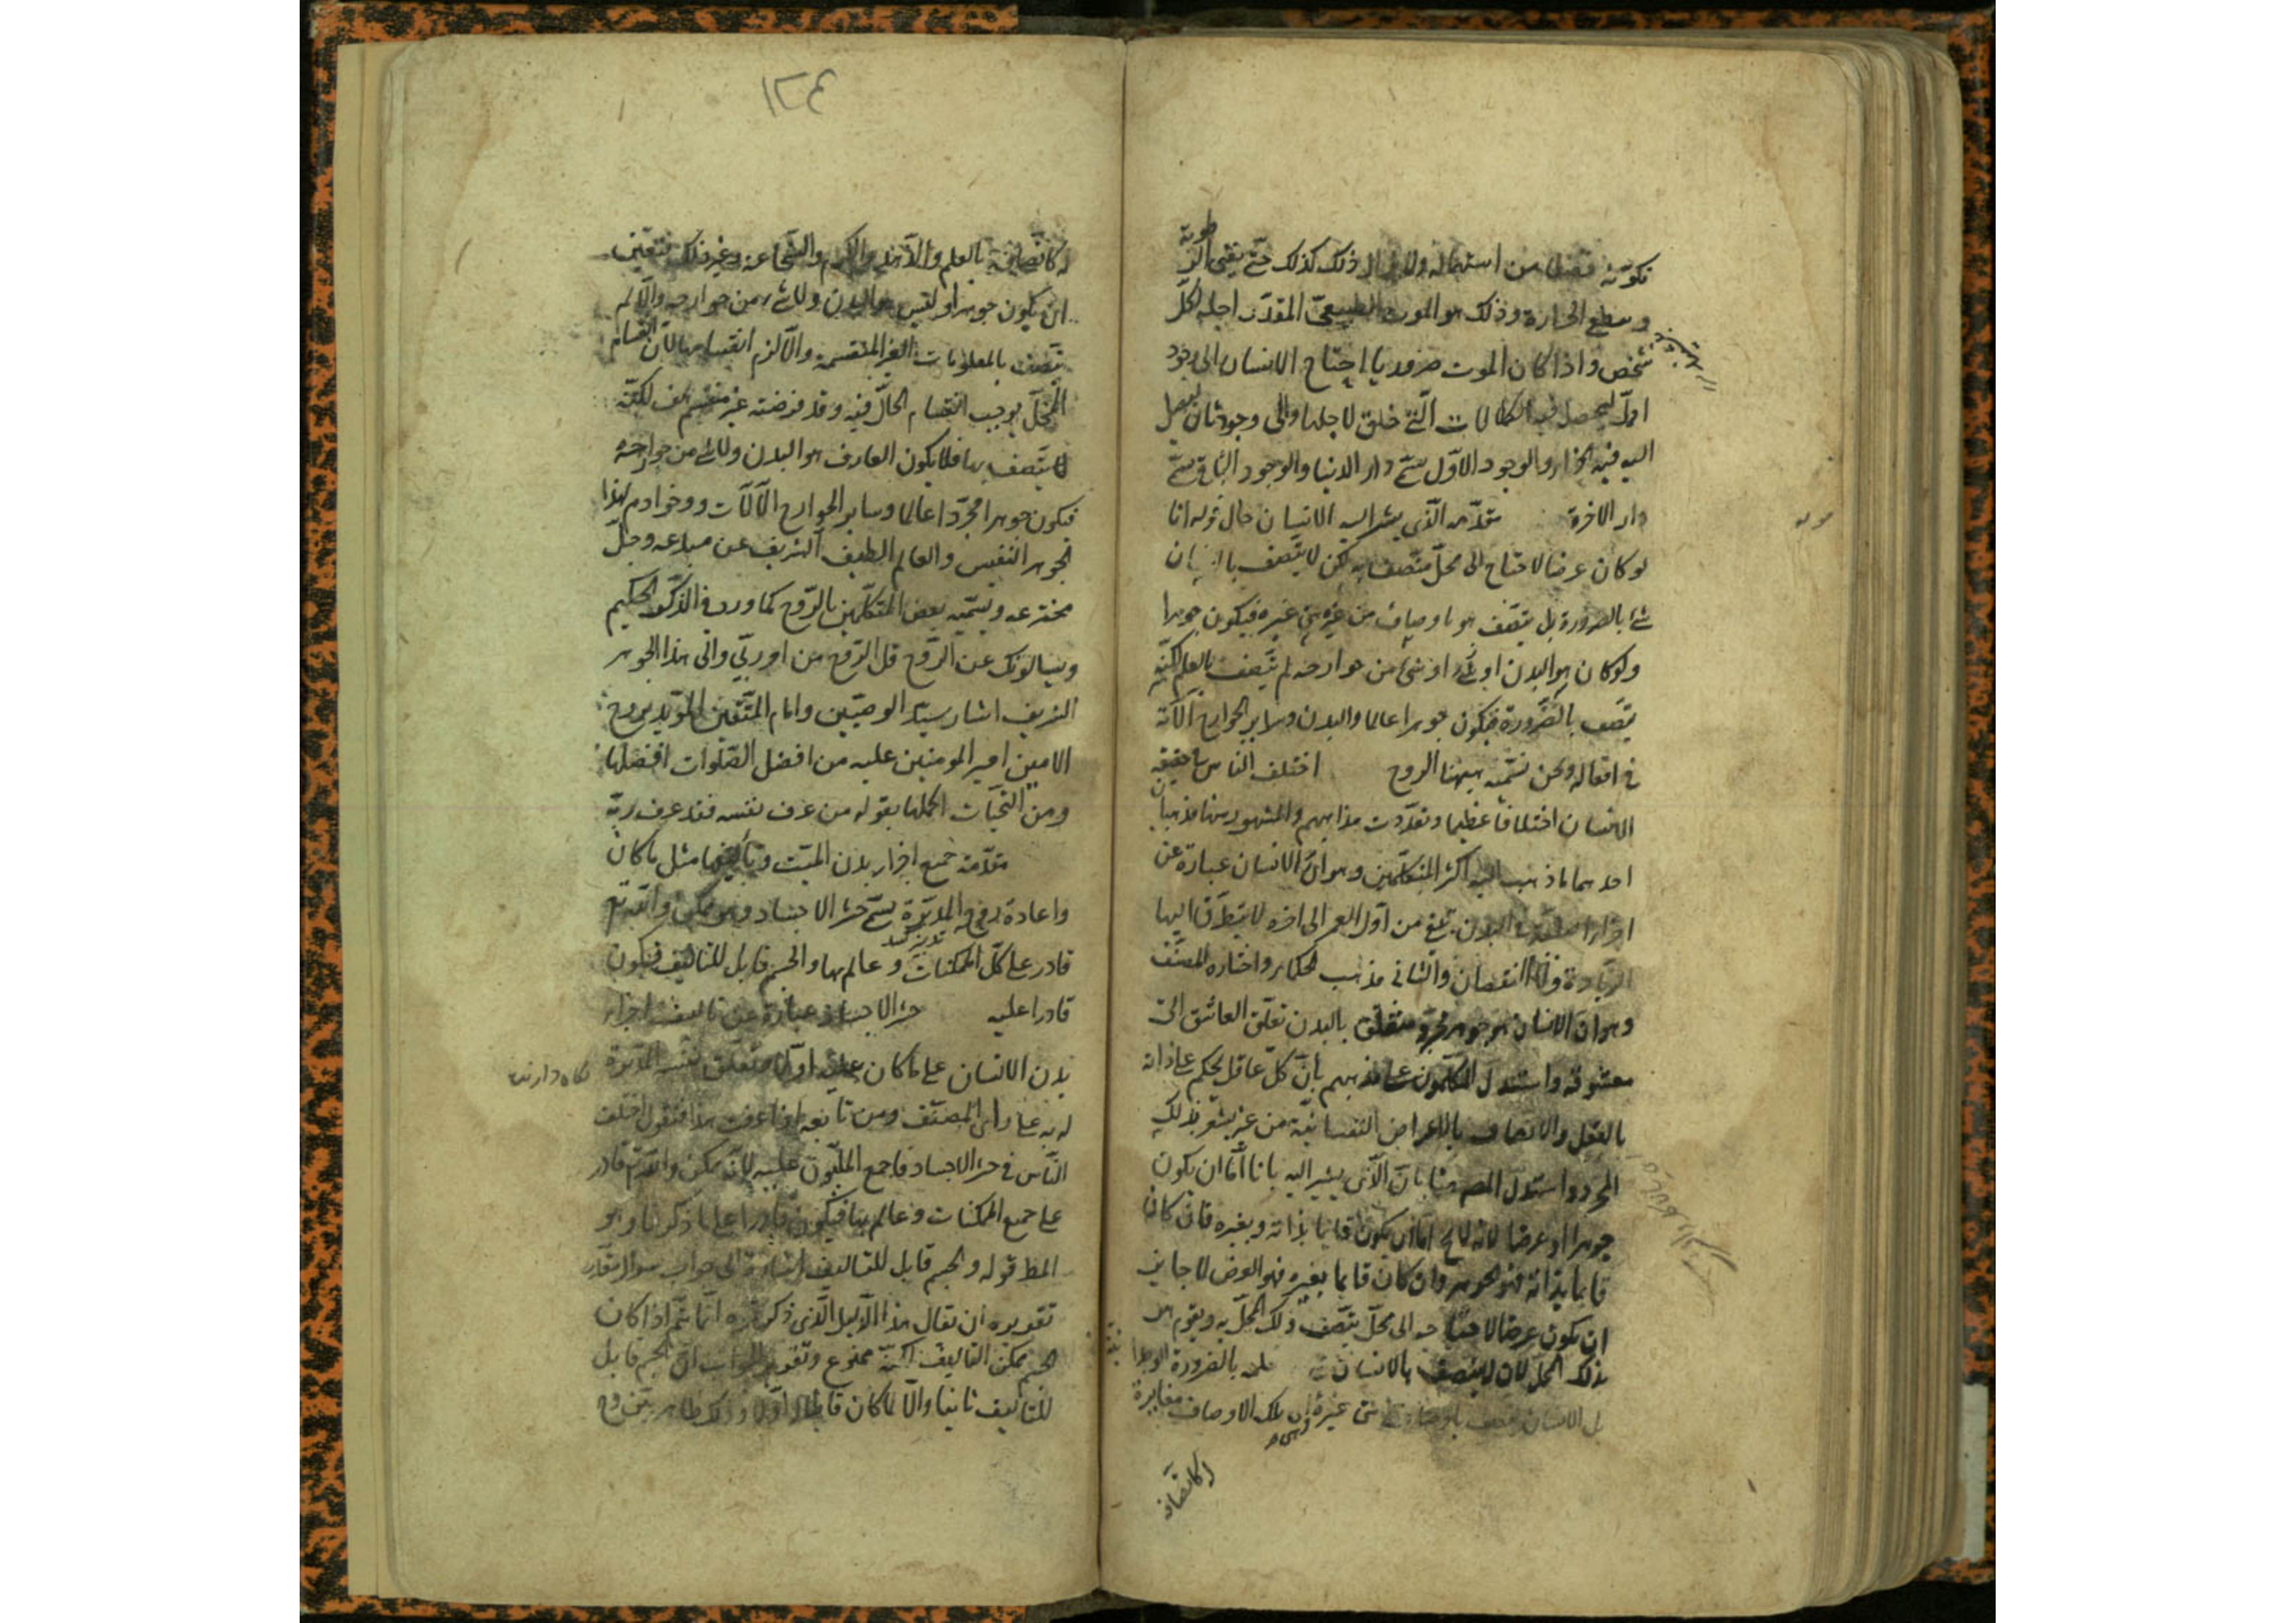 طوبة
تكونه من استهاله ولا يزال ذلك كذلك حتى يفنى الر
وينطفي الحرارة وذلك هو الموت الطبيعي المقدر اجله لكل
شخص واذا كان الموت ضروريا احتاج الانسان الى وجود
اول ليحصل فيه الكمالات التي خلق لاجلها والى وجود ثان ليصل
اليه فيه الجزاء والوجود الاول يسمى دار الدنيا والوجود الثاني يسمى
دار الاخرة مقدمه الذي يشير اليه الانسان حال قوله انا
لو كان عرضا لاحتاج الى محل متصف به لكن لا يتصف بالانسان
شئ بالضرورة بل يتصف هو باوصاف من غيره فيكون جوهرا
ولو كان هو البدن او شئ من جوارحه لم يتصف بالعلم لكنه
يتصف بالضرورة فيكون جوهرا عالما والبدن وساير الجوارح الاته
في افعاله ونحن نسميه ههنا الروح اختلف الناس في حقيقة
الانسان اختلافا عظيما وتعددت مذاهبهم والمشهور منها مذهبان
احدهما ما ذهب اليه اكثر المتكلمين وهو ان الانسان عبارة عن
اجزاء اصلية في البدن تبقى من اول العمر الى اخره لا يتطرق اليها
الزيادة ولا النقصان والثاني مذهب الحكماء واختاره المصنف
وهو ان الانسان هو جوهر مجرد متعلق بالبدن تعلق العاشق الى
معشوقه واستدل المتكلمون على مذهبهم بان كل عاقل يحكم على ذاته
بالفعل والاتصاف بالاعراض النفسانية من غير يشعر بذلك
المجرد واستدل المصر هنا بان الذي يشير اليه بانا اما ان يكون
جوهرا او عرضا لانه لا يخ اما ان يكون قايما بذاته وبغيره فان كان
قايما بذاته فهو الجوهر وان كان قايما بغيره فهو العرض لا جايز
ان يكون عرضا لاحتياجه الى محل يتصف ذلك المحل به ويقوم هو
بذلك المحل لان لا يتصف بالانسان شئ بالضرورة
بل الانسان يتصف باوصاف هي غيره لان تلك الاوصاف مغايرة
له كاتصافه
١٢٤
له كاتصافه بالعلم والكرم والشجاعة وغير ذلك فتعين
ان يكون جوهرا وليس هو البدن ولا شئ من جوارحه والا لم
يتصف بالمعلومات الغير المنقسمة والا لزم انقسامها لان انقسام
المحل يوجب انقسام الحال فيه وقد فرضته غير منقسم هف لكنه
لا يتصف بها فلا يكون العارف هو البدن ولا شئ من جوارحه
فيكون جوهرا مجردا عالما وساير الجوارح الآلات وخوادم لهذا
الجوهر النفيس والعالم اللطيف الشريف عن مبدعه وجل
مخترعه ويسميه بعض المتكلمين بالروح كما ورد في الذكر الحكيم
ويسالونك عن الروح قل الروح من امر ربي والى هذا الجوهر
الشريف اشار سيد الوصيين وامام المتقين المؤيد بروح
الامين امير المومنين عليه من افضل الصلوات افضلها
ومن التحيات اكملها بقوله من عرف نفسه فقد عرف ربه
مقدمة جميع اجزاء بدن الميت وتأليفها مثل ما كان
واعادة روحه المدبرة يسمى حشر الاجساد وهو ممكن والله تع
قادر على كل الممكنات وعالم بها والجسم قابل للتاليف فيكون
قادرا عليه حشر الاجساد عبارة عن تاليف اجزاء
بدن الانسان على ما كان عليه اولا متعلق نفسه المدبرة
له به على رأى المصنف ومن تابعه اذا عرفت هذا فنقول اختلف
الناس في حشر الاجساد فاجمع المليون عليه لانه ممكن والله تع قادر
على جميع الممكنات وعالم بها فيكون قادرا على ما ذكرنا وهو
المط قوله والجسم قابل للتاليف اشارة الى جواب سوال مقدر
تقديره ان يقال هذا الدليل الذي ذكرتموه انما يتم اذا كان
الجسم ممكن التاليف لكنه ممنوع وتقرير الجواب ان الجسم قابل
للتاليف ثانيا والا لما كان قابلا له اولا وذلك ظاهر بين وح